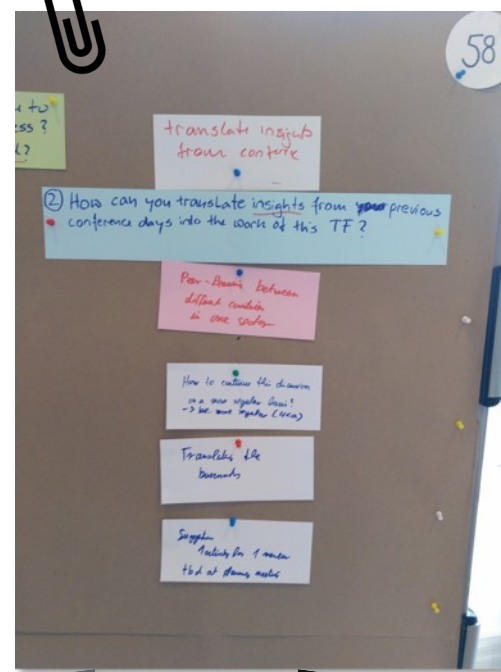 58
e to
ess?
translate insights
from
② How can you translate insights from previous
conference days into the work of this TF?
between
different countries
in one sector
How to continue this discussion
on a more regular basis?
-> be more regular
Translate the
1 for 1
tbd at